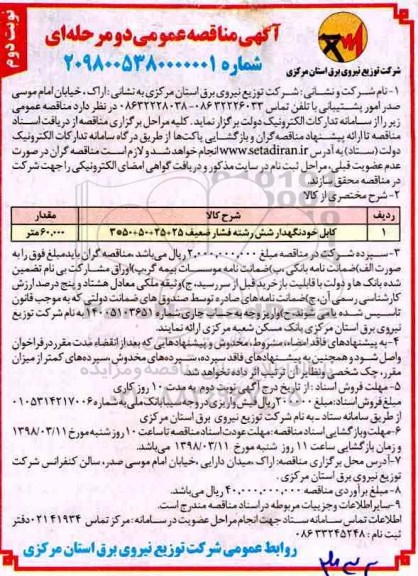 نوبت دوم
آگهی مناقصه عمومی دو مرحله‌ای
شماره ۲۰۹۸۰۰۵۳۸۰۰۰۰۰۰۱
شرکت توزیع نیروی برق استان مرکزی
۱- نام شرکت و نشانی : شرکت توزیع نیروی برق استان مرکزی به نشانی : اراک، خیابان امام موسی
صدر امور پشتیبانی با تلفن تماس ۳۲۲۲۶۰۳۳-۰۸۶ ۰۸۶۳۲۲۲۸۰۳۸ در نظر دارد مناقصه عمومی
زیر را از سامانه تدارکات الکترونیک دولت برگزار نماید. کلیه مراحل برگزاری مناقصه از دریافت اسناد
مناقصه تا ارائه پیشنهاد مناقصه گران و بازگشایی پاکت‌ها از طریق درگاه سامانه تدارکات الکترونیک
دولت (ستاد) به آدرس www.setadiran.ir انجام خواهد شد و لازم است مناقصه گران در صورت
عدم عضویت قبلی، مراحل ثبت نام در سایت مذکور و دریافت گواهی امضای الکترونیکی را جهت شرکت
در مناقصه محقق سازند.
۲- شرح مختصری از کالا
ردیف شرح کالا مقدار
۱ کابل خودنگهدار شش رشته فشار ضعیف ۲۵+۲۵+۵۰+۵۰*۳ ۶۰.۰۰۰ متر
۳- سپرده شرکت در مناقصه مبلغ ۲,۰۰۰,۰۰۰,۰۰۰ ریال می‌باشد. مناقصه گران باید مبلغ فوق را به
صورت الف)ضمانت نامه بانکی، ب)ضمانت نامه موسسات بیمه گر، پ)اوراق مشارکت بی نام تضمین
شده بانک ها و دولت با قابلیت باز خرید قبل از سررسید، ج)وثیقه ملکی معادل هشتاد و پنج درصد ارزش
کارشناسی رسمی آن، چ)ضمانت نامه های صادره توسط صندوق های ضمانت دولتی که به موجب قانون
تاسیس شده یا می شوند، ح)واریز وجه به حساب جاری شماره ۱۴۰۰۵۱۰۳۶۵۱ به نام شرکت توزیع
نیروی برق استان مرکزی بانک مسکن شعبه مرکزی ارائه نمایند.
۴- به پیشنهادهای فاقد امضاء، مشروط، مخدوش و پیشنهادهایی که بعد از انقضاء مدت مقرر در فراخوان
واصل شود و همچنین به پیشنهادهای فاقد سپرده، سپرده‌های مخدوش، سپرده‌های کمتر از میزان
مقرر، چک شخصی و نظایر آن ترتیب اثر داده نخواهد شد.
۵- مهلت فروش اسناد : از تاریخ درج آگهی نوبت دوم به مدت ۱۰ روز کاری
مبلغ فروش اسناد: مبلغ ۲۰۰,۰۰۰ ریال فیش واریزی در وجه سیبا بانک ملی به شماره ۰۱۰۵۳۱۴۲۱۷۰۰۶
از طریق سامانه ستاد - به نام شرکت توزیع نیروی برق استان مرکزی
۶- مهلت و بازگشایی اسناد مناقصه : مهلت عودت اسناد مناقصه تا ساعت ۱۰ روز شنبه مورخ ۱۳۹۸/۰۳/۱۱
و زمان بازگشایی ساعت ۱۱ روز شنبه مورخ ۱۳۹۸/۰۳/۱۱ می‌باشد.
۷- آدرس محل برگزاری مناقصه : اراک، میدان دارایی، خیابان امام موسی صدر، سالن کنفرانس شرکت
توزیع نیروی برق استان مرکزی.
۸- مبلغ برآوردی مناقصه ۴۰,۰۰۰,۰۰۰,۰۰۰ ریال می‌باشد.
۹- سایر اطلاعات و جزییات مربوطه در اسناد مناقصه مندرج است.
اطلاعات تماس سامانه ستاد جهت انجام مراحل عضویت در سامانه : مرکز تماس ۰۲۱۴۱۹۳۴ دفتر
ثبت نام : ۰۸۶۳۳۲۴۵۲۴۸
روابط عمومی شرکت توزیع نیروی برق استان مرکزی